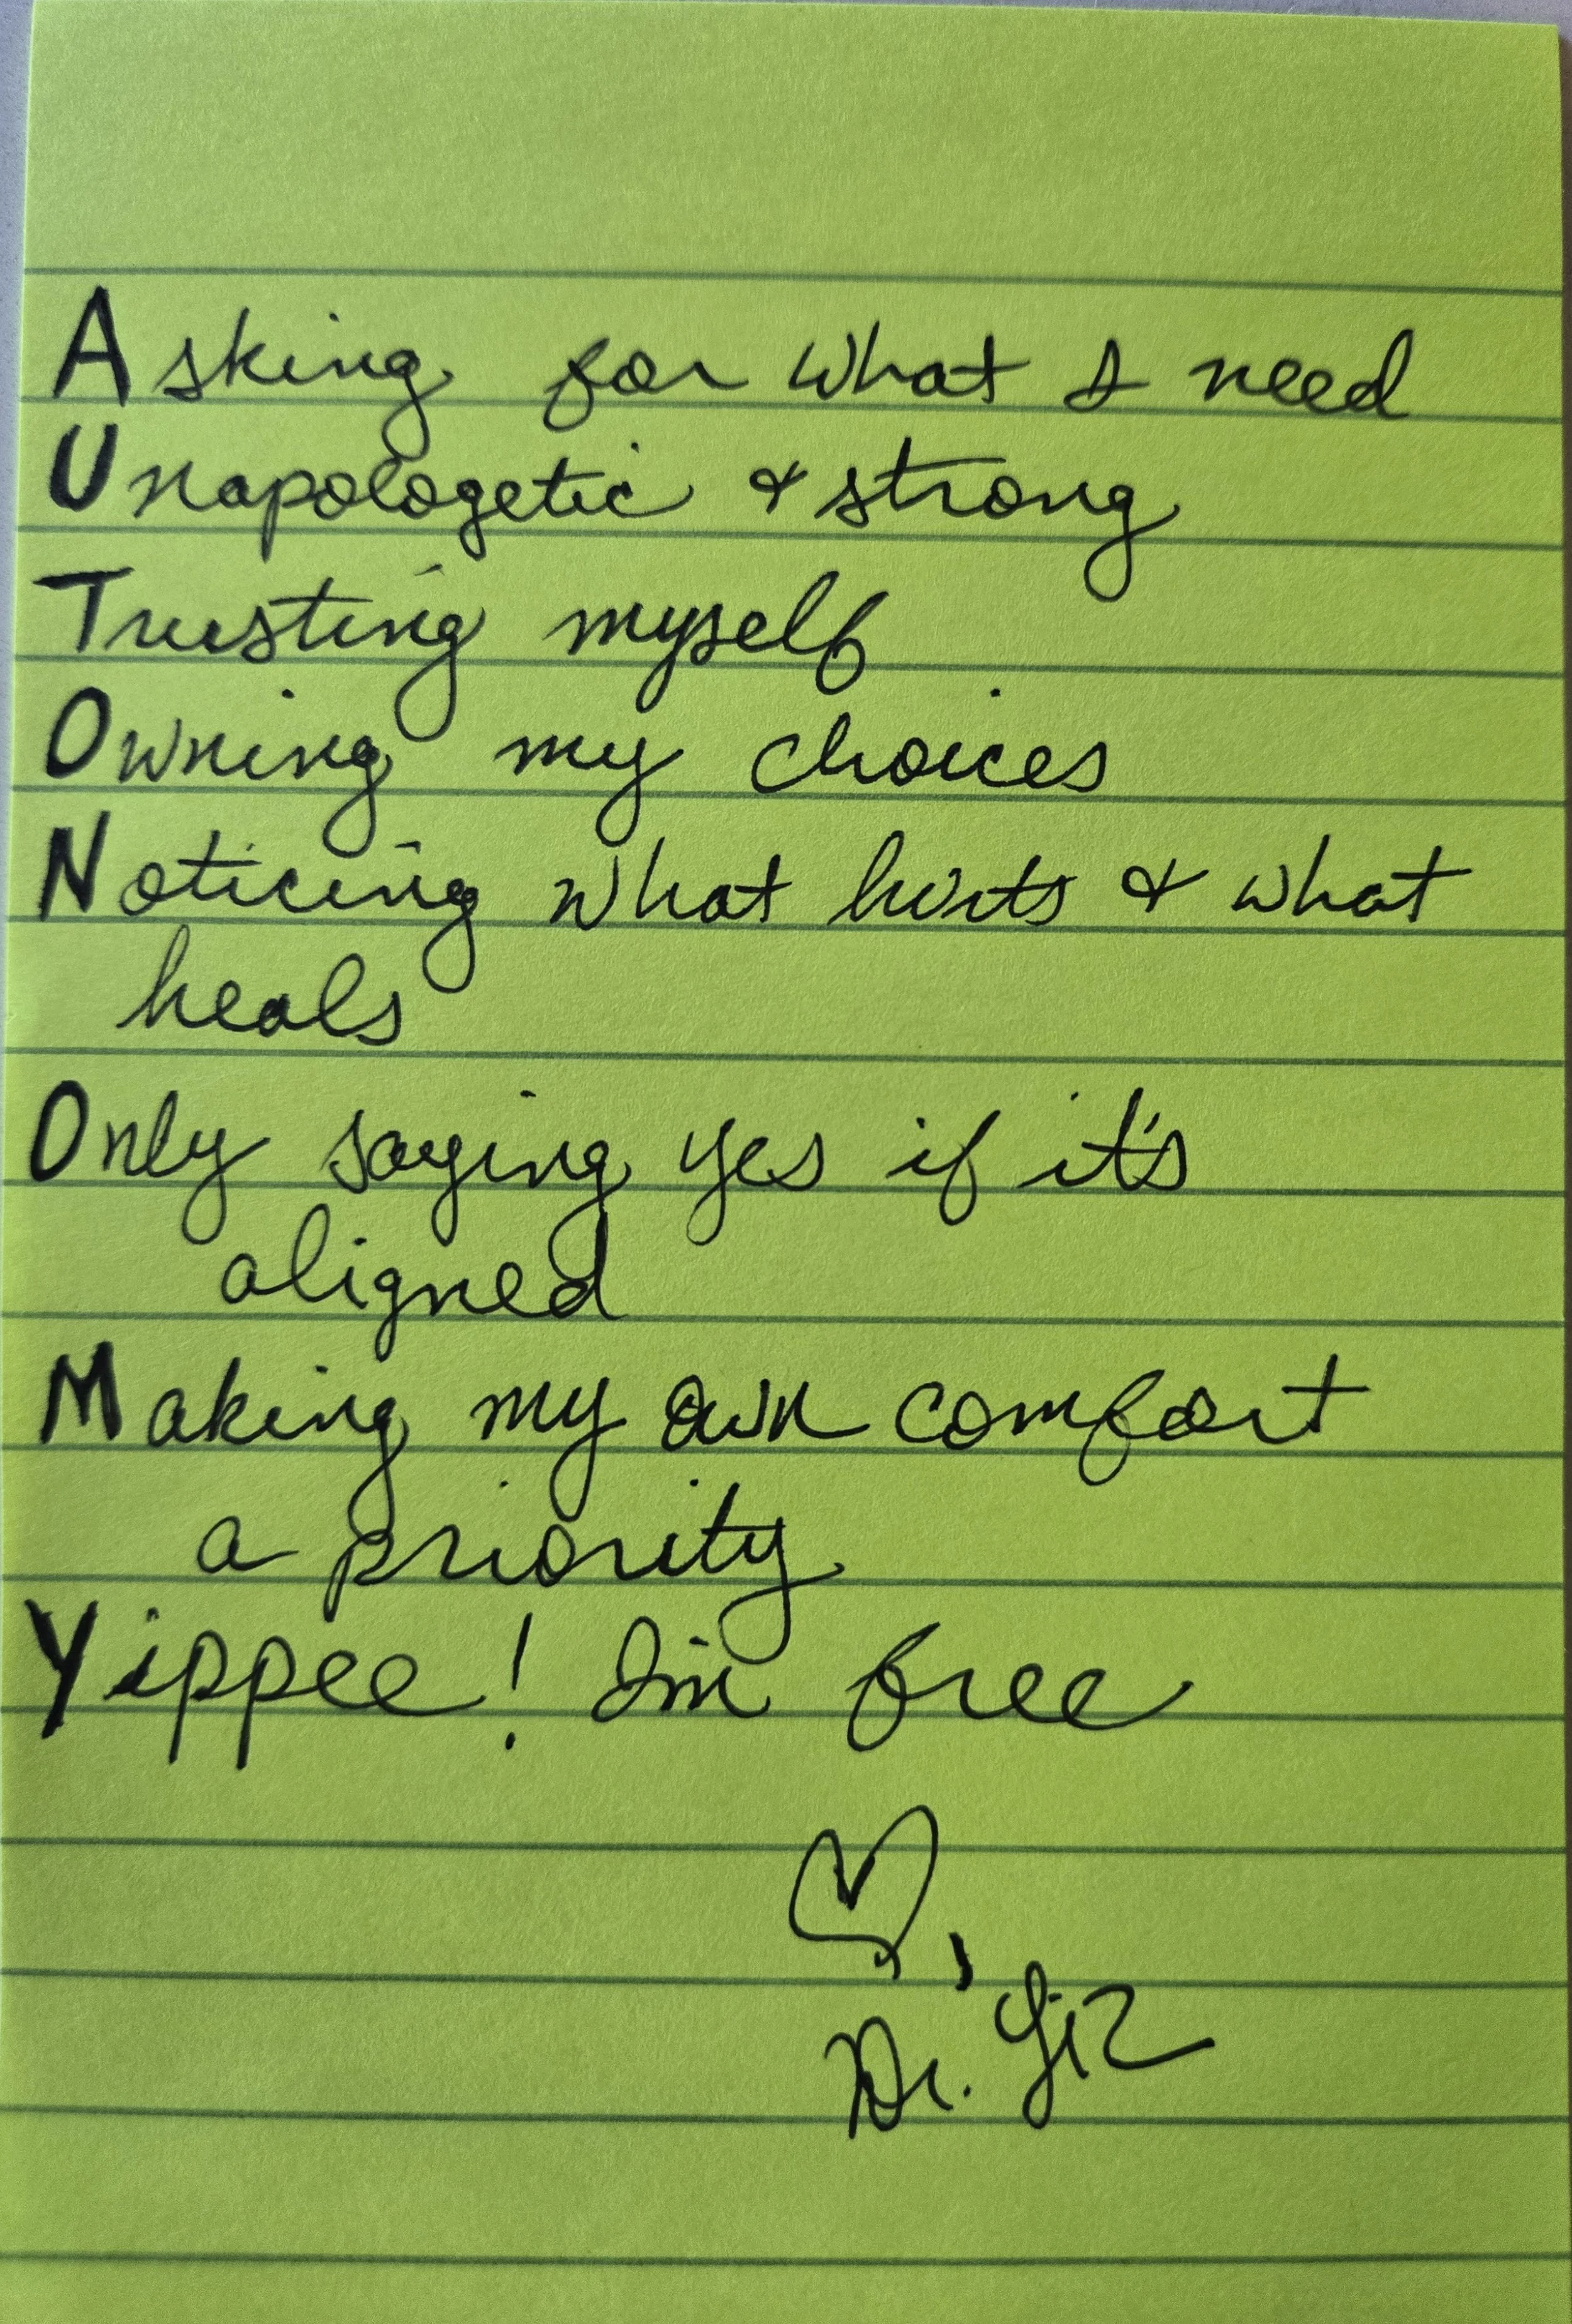 Asking for what I need
Unapologetic & strong
Trusting myself
Owning my choices
Noticing what hurts & what
heals
Only saying yes if it's
aligned
Making my own comfort
a priority
Yippee! I'm free
♡,
Dr. Liz